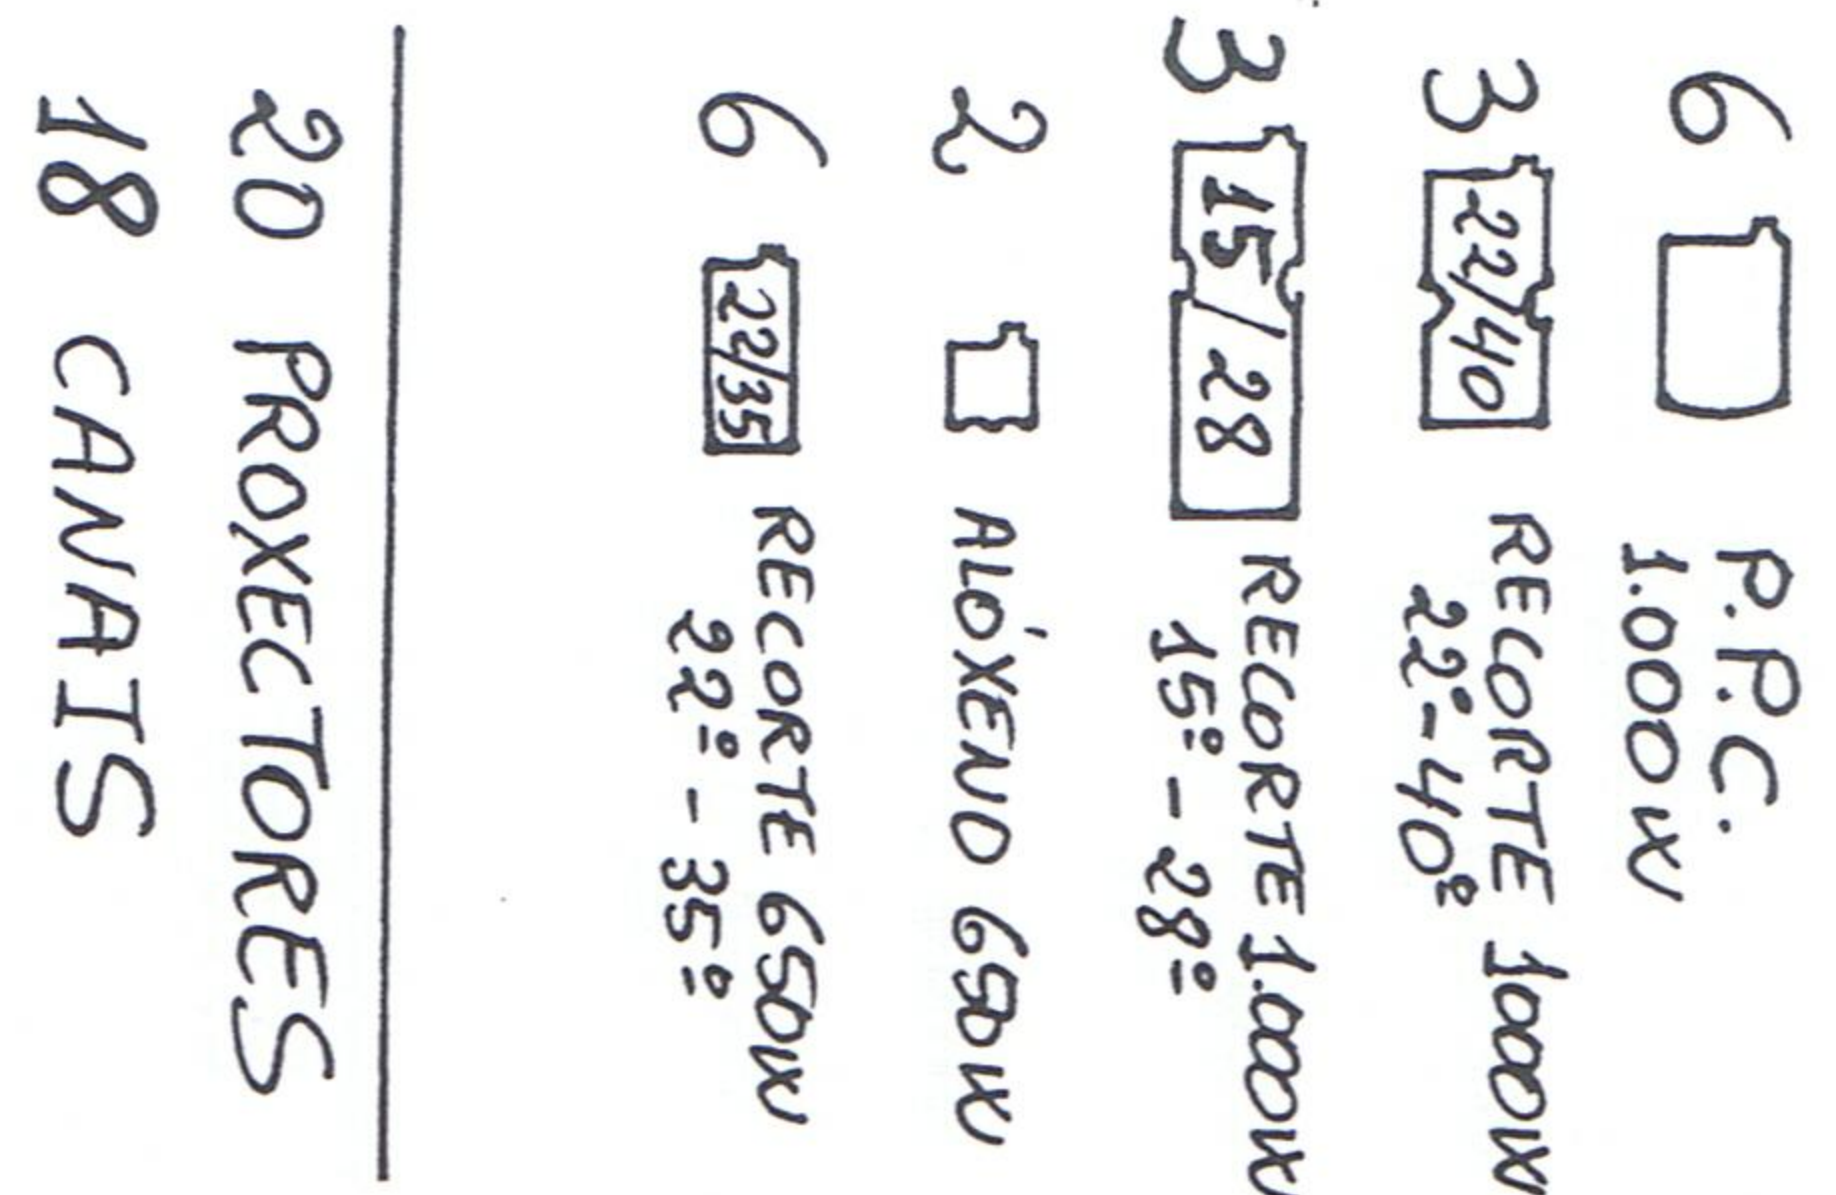 6 P.P.C.
1.000W
3 22/40 RECORTE 1000W
22º-40º
3 15/28 RECORTE 1.000W
15º - 28º
2 ALÓXENO 650W
6 22/35 RECORTE 650W
22º - 35º
20 PROXECTORES
18 CANAIS